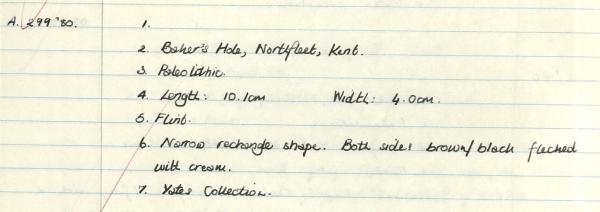 A. 299'80. 1.
2. Baker's Hole, Northfleet, Kent.
3. Paleolithic.
4. Length: 10.1cm Width: 4.0cm.
5. Flint.
6. Narrow rectangle shape. Both sides brown/black flecked
with cream.
7. Yates Collection.